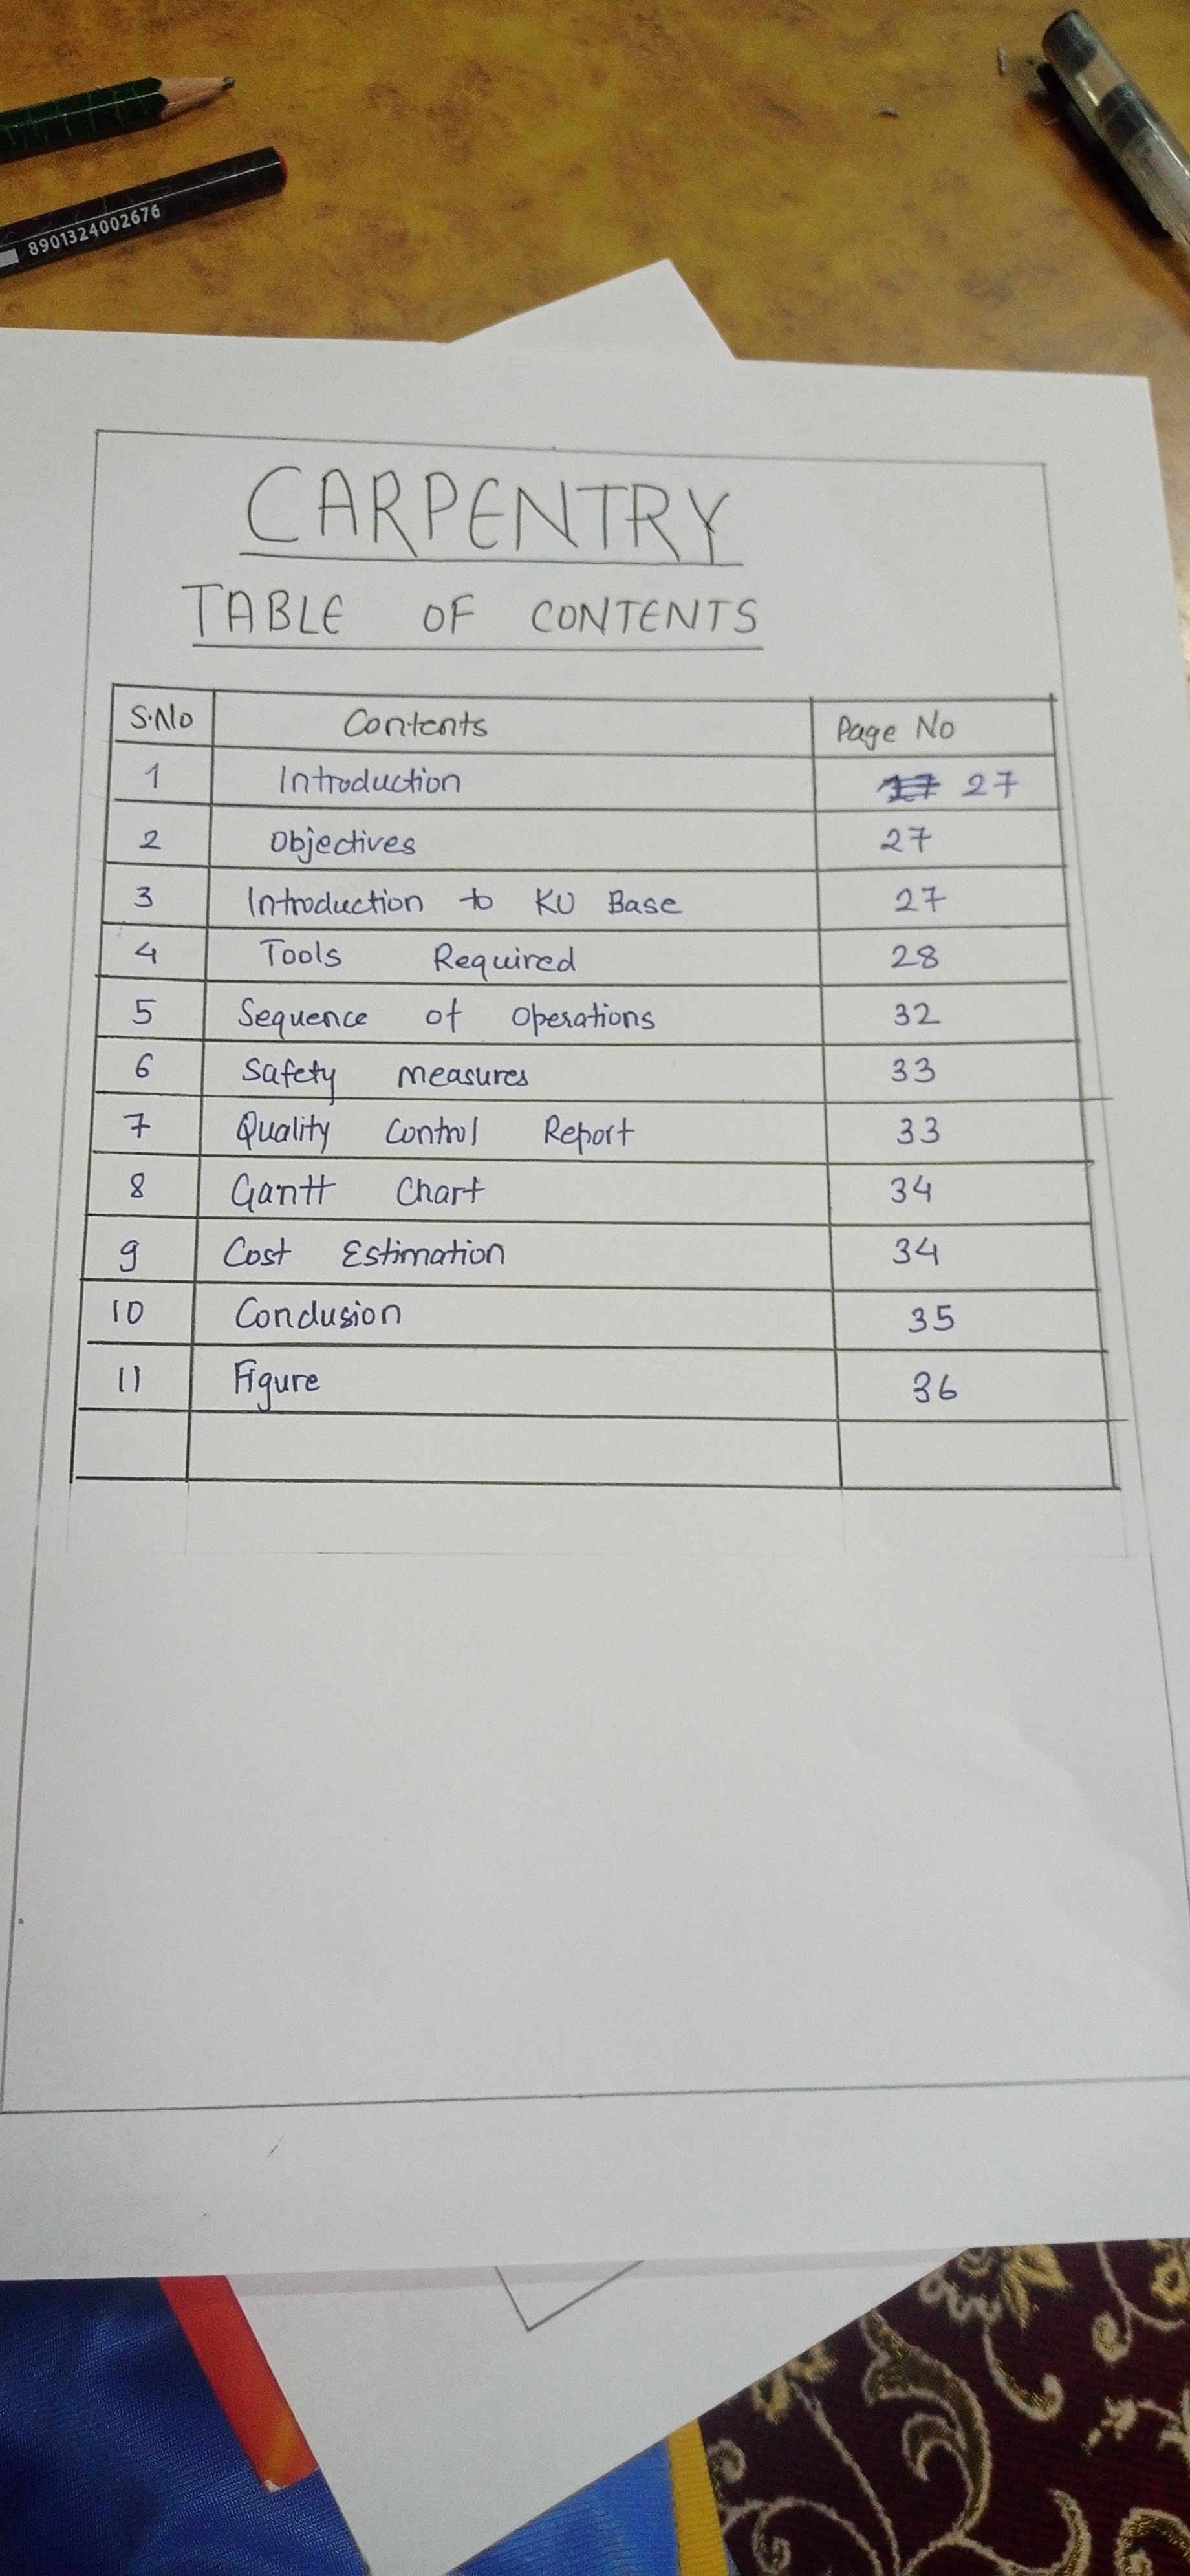 8901324002676
CARPENTRY
TABLE OF CONTENTS
S.No Contents Page No
1 Introduction 27
2 Objectives 27
3 Introduction to KU Base 27
4 Tools Required 28
5 Sequence of Operations 32
6 Safety measures 33
7 Quality Control Report 33
8 Gantt Chart 34
9 Cost Estimation 34
10 Conclusion 35
11 Figure 36